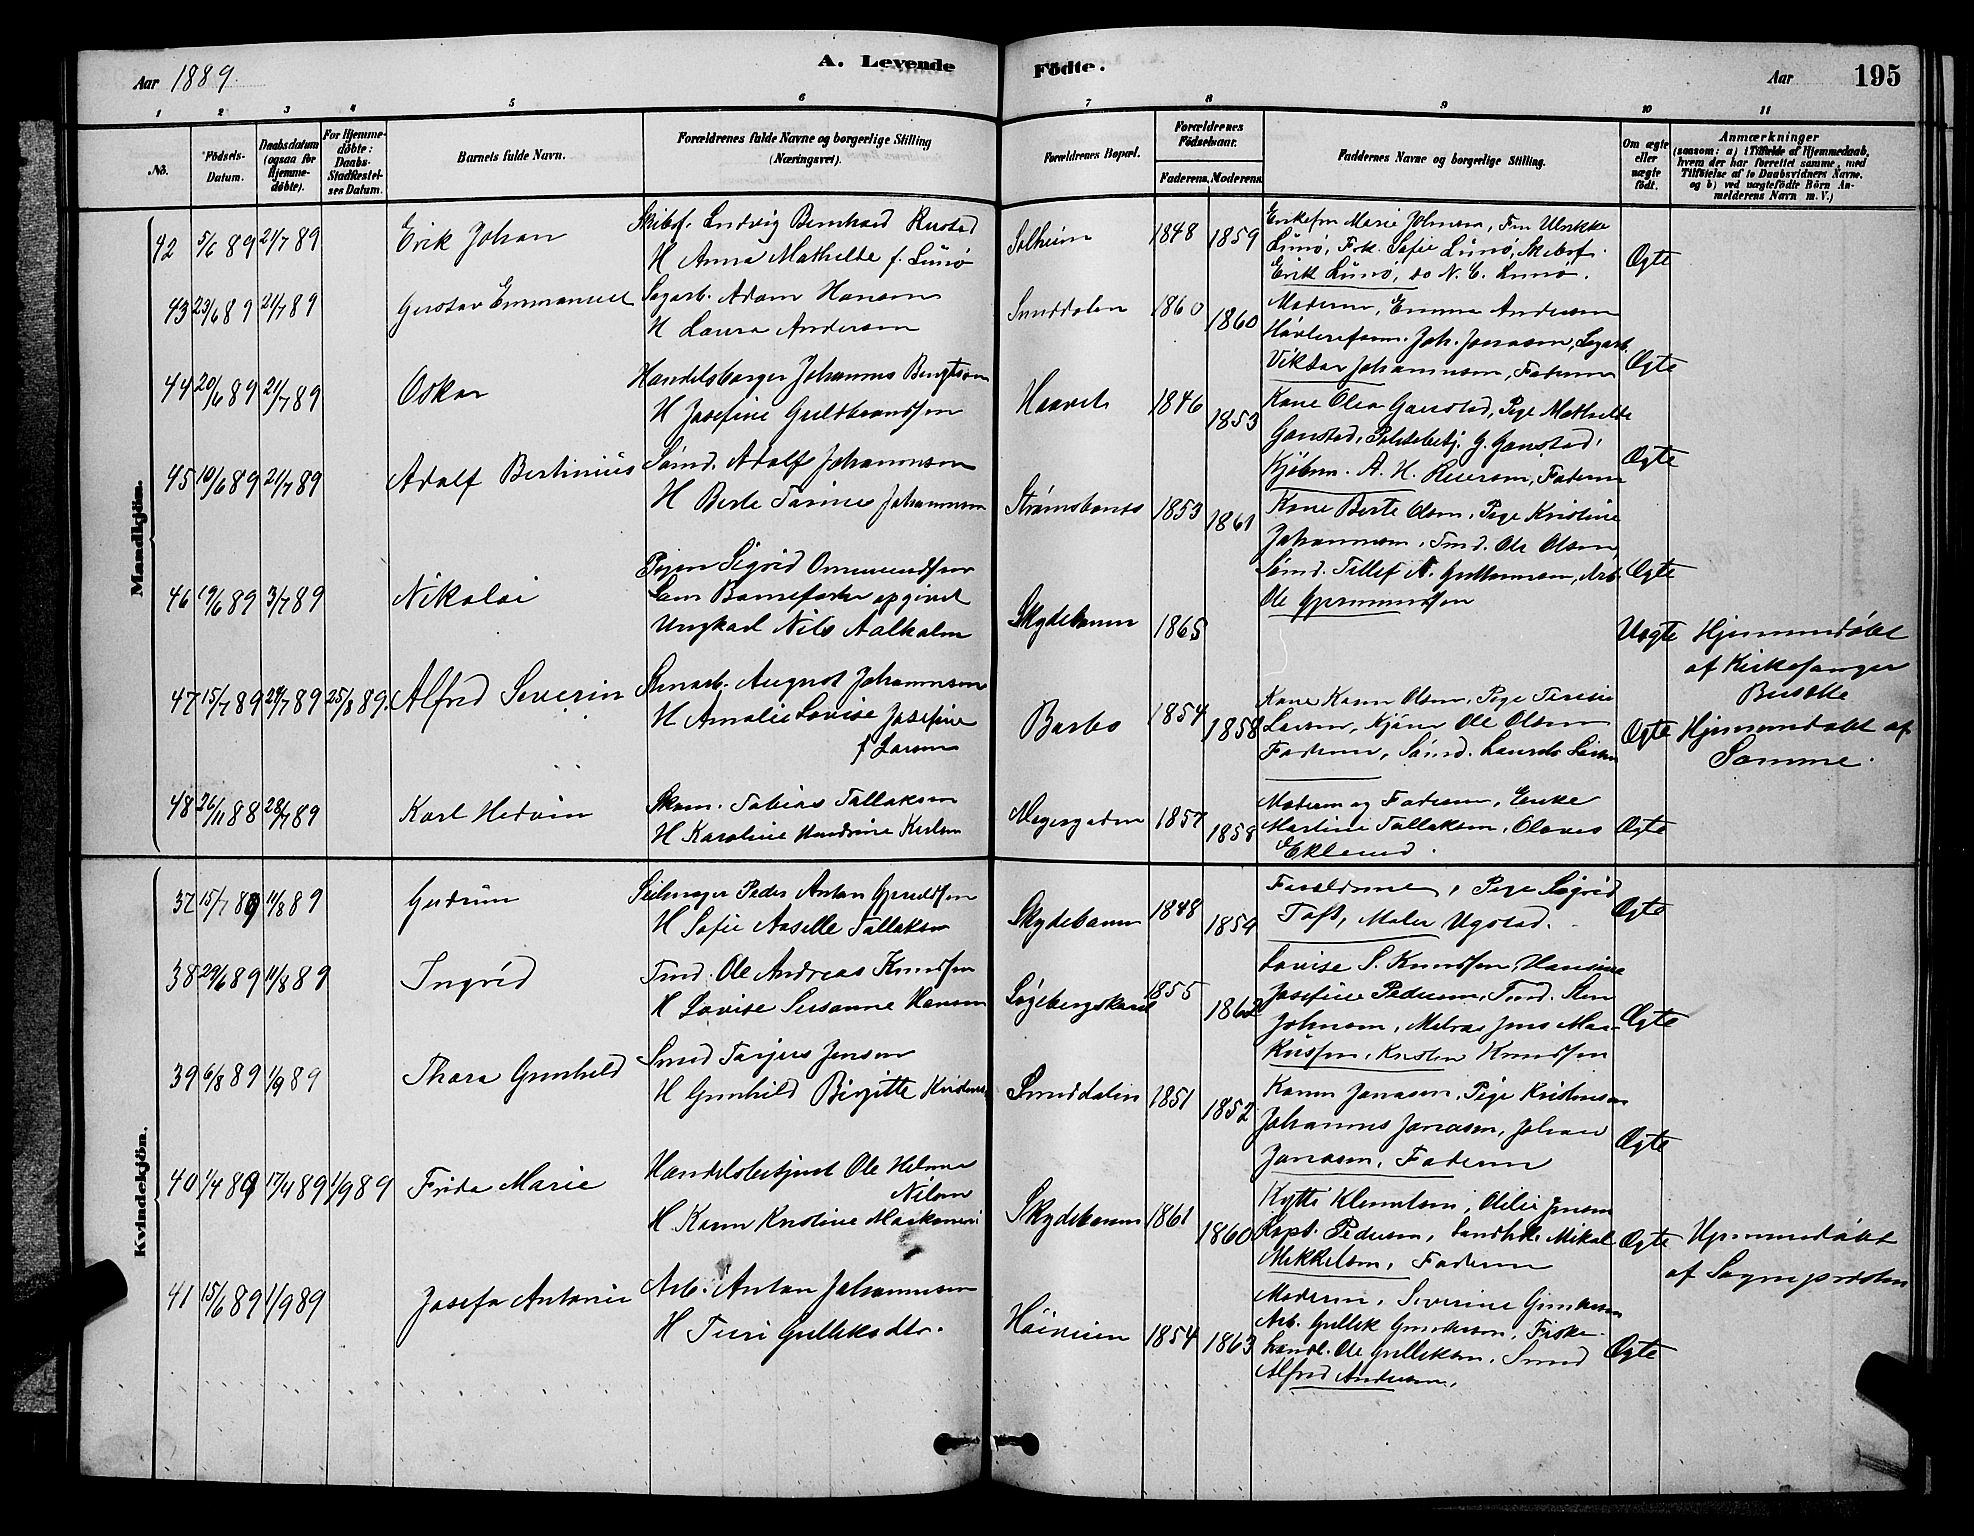 Aar 1889
A. Levende
Födte.
Aar
195
1 2 3 4 5 6 7 8 9 10 11
No.
Födsels-
Datum.
Daabsdatum
(ogsaa for
Hjemme-
døbte).
For Hjemme-
døbte:
Daabs-
Stadfæstel-
ses Datum.
Barnets fulde Navn.
Forældrenes fulde Navne og borgerlige Stilling
(Næringsvei).
Forældrenes Bopæl.
Forældrenes
Födselsaar.
Faderens.
Moderens.
Faddernes Navne og borgerlige Stilling.
Om ægte
eller
uægte
født.
Anmærkninger
(saasom: a) i Tilfælde af Hjemmedaab,
hvem der har forrettet samme, med
Tilföielse af to Daabsvidners Navne.
og b) ved uægtefödte Börn An-
melderens Navn m. V.)
Mandkjön.
42 5/6 89 21/7 89
Erik Johan
Skibsf. Ludvig Bernhard Rustad
H Anna Mathilde f. Lunø
Solheim
1848 1859
Enkefru Marie Johnsen, Fru Ulrikke
Lunø, Frk. Sofie Lunø, Skibsf.
Erik Lunø, do N. E. Lunø.
Ægte
43 23/6 89 21/7 89
Gustav Emmanuel
Sagarb. Adam Hansen
H Laura Andersen
Smeddalen
1860 1860
Moderen, Emma Andersen
Høvlerieform. Joh. Jonasen, Sagarb.
Viktor Johannesen, Faderen
Ægte
44 20/6 89 21/7 89
Oskar
Handelsborger Johannes Bengtson
H Josefine Guldbrandsen
Haavet
1846 1853
Kone Olea Ganstad, Pige Mathilde
Ganstad, Politibetj. G. Ganstad,
Kjöbm. A. H. Reiersen, Faderen
Ægte
45 10/6 89 21/7 89
Adolf Bertinius
Sömd. Adolf Johannesen
H Berte Tarine Johannesen
Strømsbonæs
1853 1861
Kone Berte Olsen, Pige Kristine
Johannesen, Tmd. Ole Olsen,
Sömd. Tellef N. Guttormsen, Arb.
Ole Gjermundsen
Ægte
46 19/6 89 3/7 89
Nikolai
Pigen Sigrid Ommundsen
Som Barnefader opgivet
Ungkarl Nils Aalholm
Skydebanen
1865
Uægte
Hjemmedöbt
af Kirkesanger
47 15/7 89 27/7 89 25/8 89.
Alfred Severin
Stenarb. August Johannesen
H Amalie Lovise Josefine
f Larsen
Barbo
1854 1858
Kone Karen Olsen, Pige Teresie
Larsen, Kjörer Ole Olsen
Faderen, Sömd. Laurits Larsen
Ægte
Hjemmedöbt af
Samme.
48 26/11 88 28/7 89
Karl Hedvin
Skom. Tobias Tallaksen
H Karoline Hendrine Karlsen
1857 1858
Moderen og Faderen, Enke
Martine Tallaksen, Olaves
Eklund.
Ægte
Kvindekjön.
37 15/7 89 11/8 89
Gudrun
Seilmager Peder Anton Gjeruldsen
H Sofie Aaselle Tallaksen
Skydebanen
1848 1854
Forældrene, Pige Sigrid
Toft, Maler Ugstad.
Ægte
38 29/6 89 11/8 89
Ingrid
Tmd. Ole Andreas Knudsen
H Lovise Susanne Hansen
1855 1862
Lovise S. Knudsen, Hansine
Josefine Pedersen, Tmd. Sten
Johnsen, Matros Jens Mar-
kussen, Kristen Knudsen
Ægte
39 6/8 89 1/9 89
Thora Gunhild
Smed Tarjus Jensen
H Gunhild Birgitte Kristens.
Smeddalen
1851 1852
Karen Jonasen, Pige Kristensen
Johannes Jonasen, Johan
Jonasen, Faderen
Ægte
40 1/4 89 17/4 89 1/9 89
Frida Marie
Handelsbetjent Ole Helmer
Nilsen
H Karen Kristine
Skydebanen
1861 1860
Kytti Klemetsen, Otilie Jensen
Kapt. Pedersen, Landh. Mikal
Mikkelsen, Faderen
Ægte
Hjemmedöbt
af Sognepresten
41 15/6 89 1/9 89
Josefa Antonie
Arb. Anton Johannesen
H Turi Gulliksdtr.
Höiveien
1854 1863
Moderen, Severine Gundersen
Arb. Gullik Gundersen, Fiske-
handl. Ole Gulliksen, Smed
Alfred Andersen,
Ægte